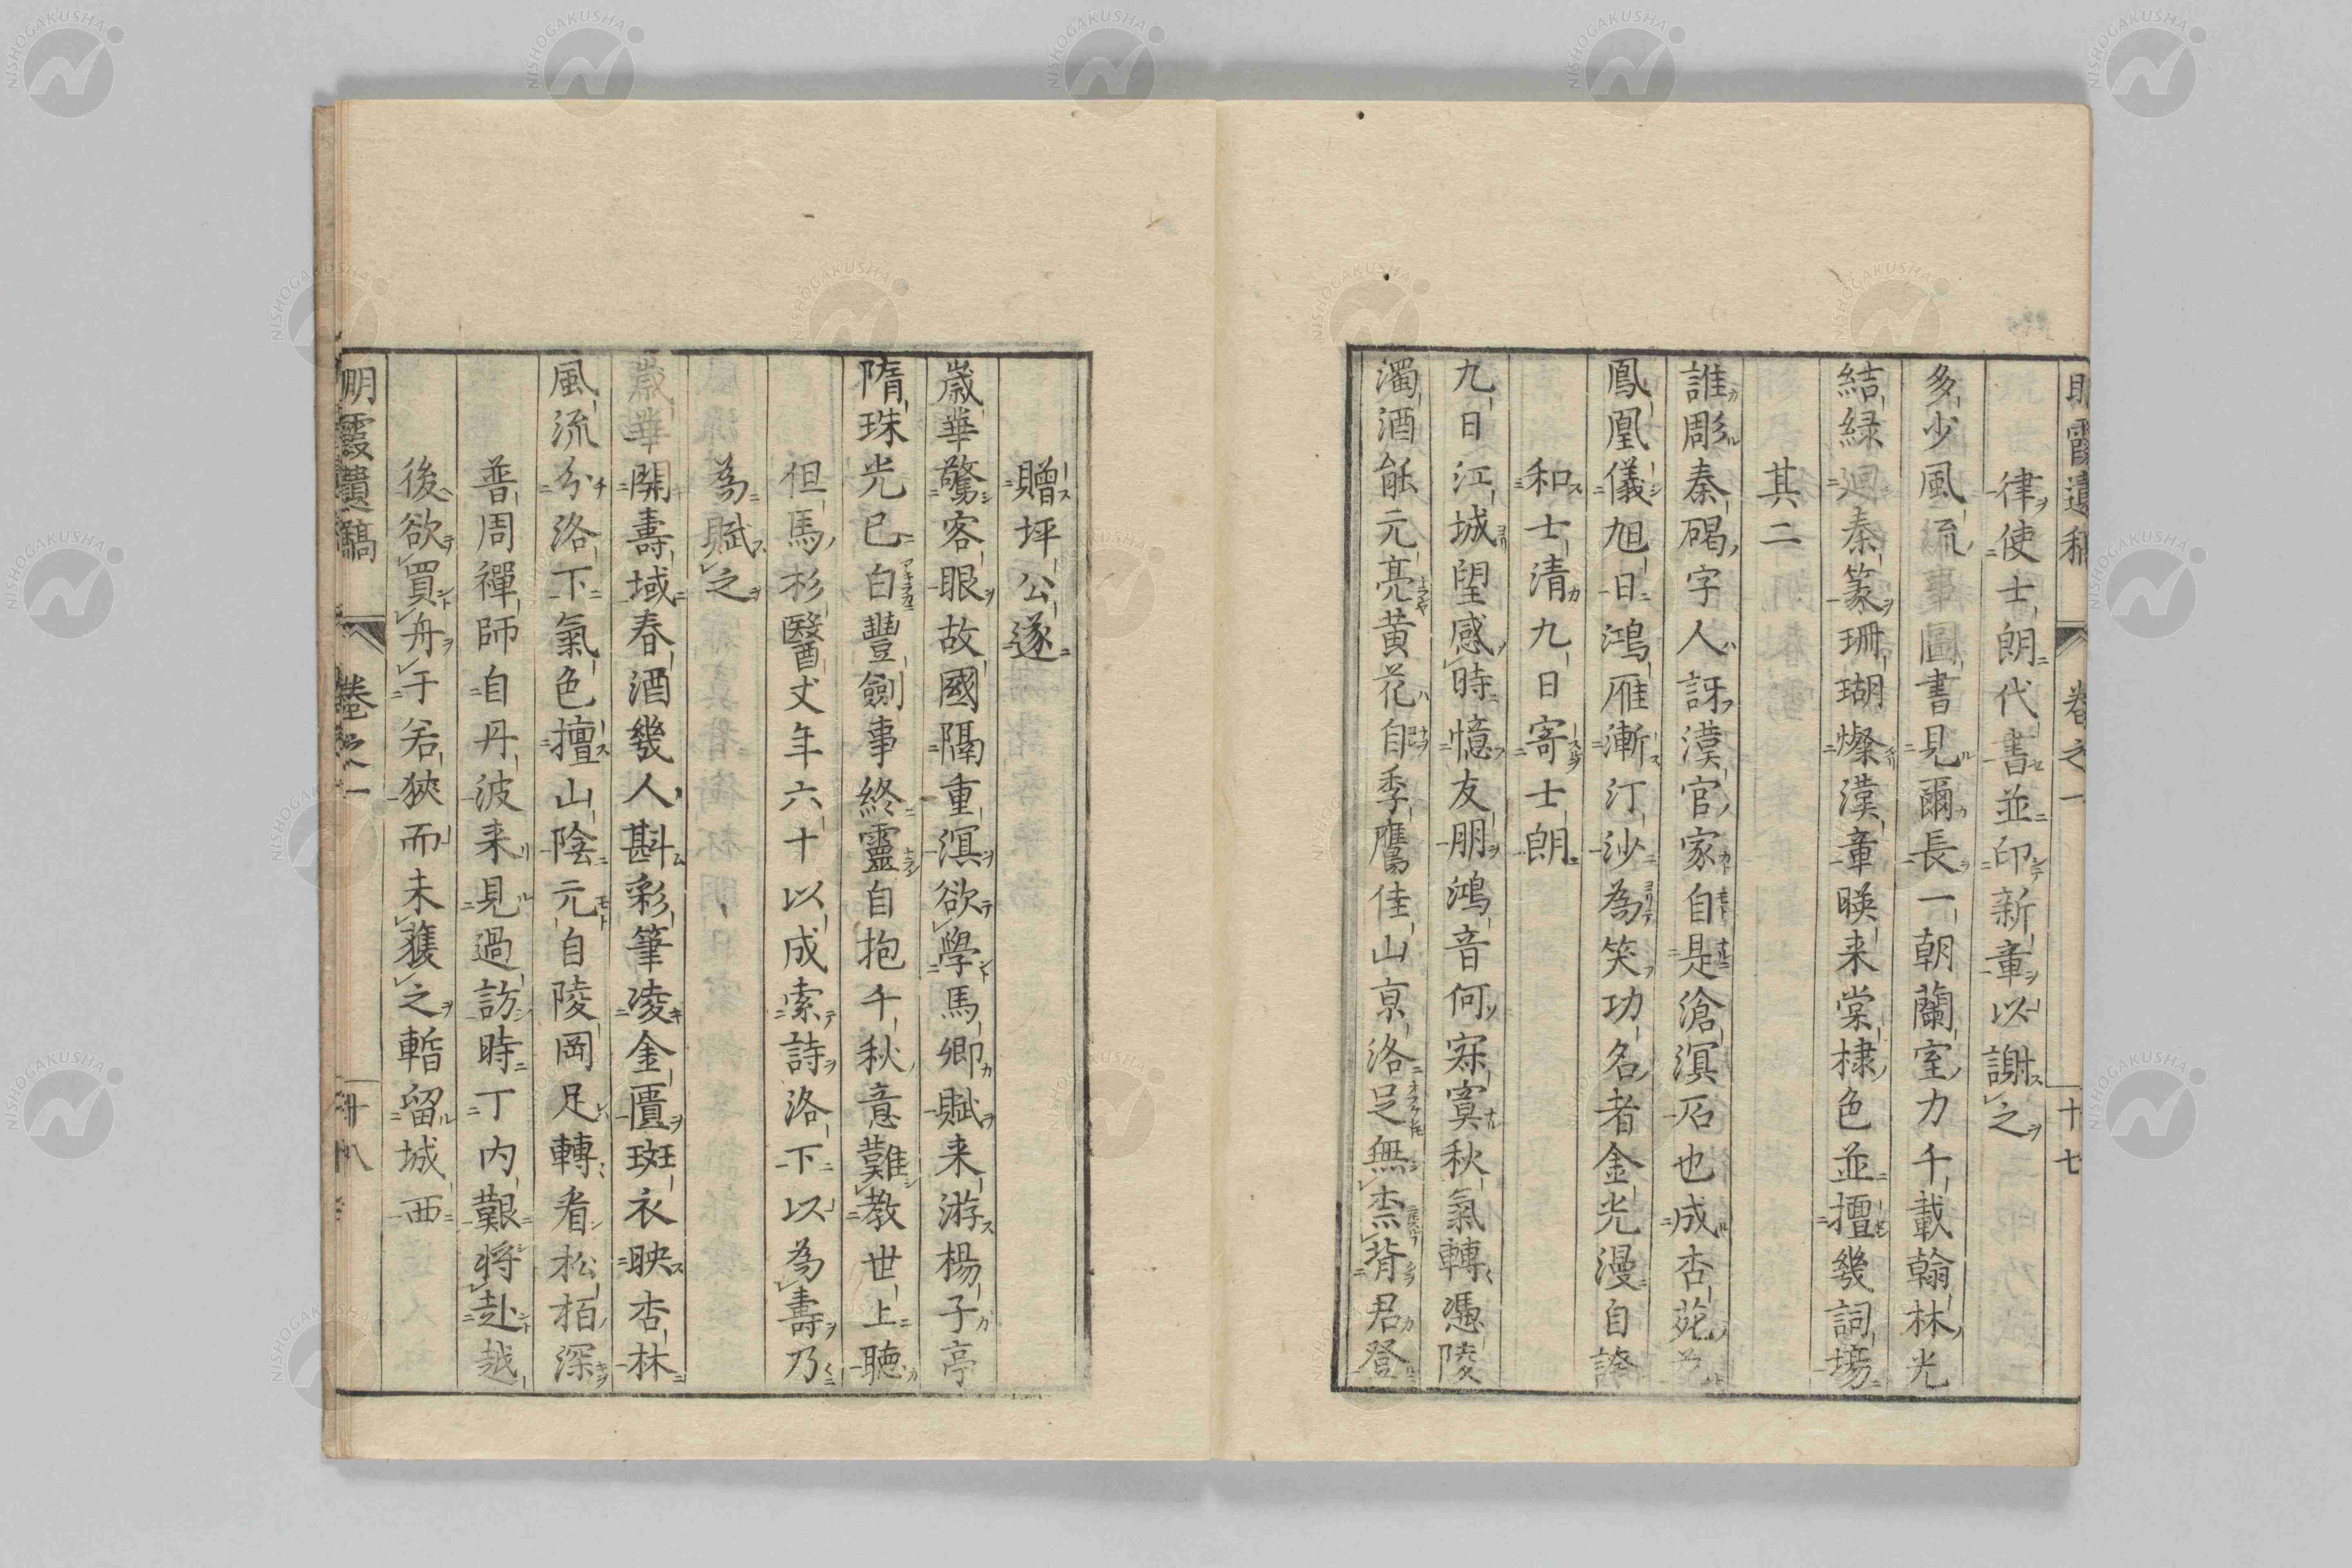 明霞遺稿 卷之一 十七
律使士朗代書並印新章以謝之
多少風流事圖書見爾長一朝蘭室力千載翰林光
結緑廻秦篆珊瑚燦漢章暎来棠棣色並擅幾詞場
其二
誰彫秦碣字人訝漢官家自是滄溟石也成杏苑
鳳凰儀旭日鴻雁漸汀沙為笑功名者金光漫自誇
和士清九日寄士朗
九日江城望感時憶友朋鴻音何寂寞秋氣轉憑陵
濁酒能元亮黄花自季鷹佳山京洛足無柰背君登
贈坪公遂
歳華驚客眼故國隔重溟欲學馬卿賦来游楊子亭
隋珠光已白豐劍事終靈自抱千秋意難教世上聴
但馬杉醫丈年六十以成索詩洛下以為壽乃
為賦之
歳華開壽域春酒幾人斟彩筆凌金匱斑衣映杏林
風流分洛下氣色擅山陰元自陵岡足轉看松栢深
普周禪師自丹波来見過訪時丁内艱将赴越
後欲買舟于若狹而未獲之暫留城西
明霞遺稿 卷之一
NISHOGAKUSHA